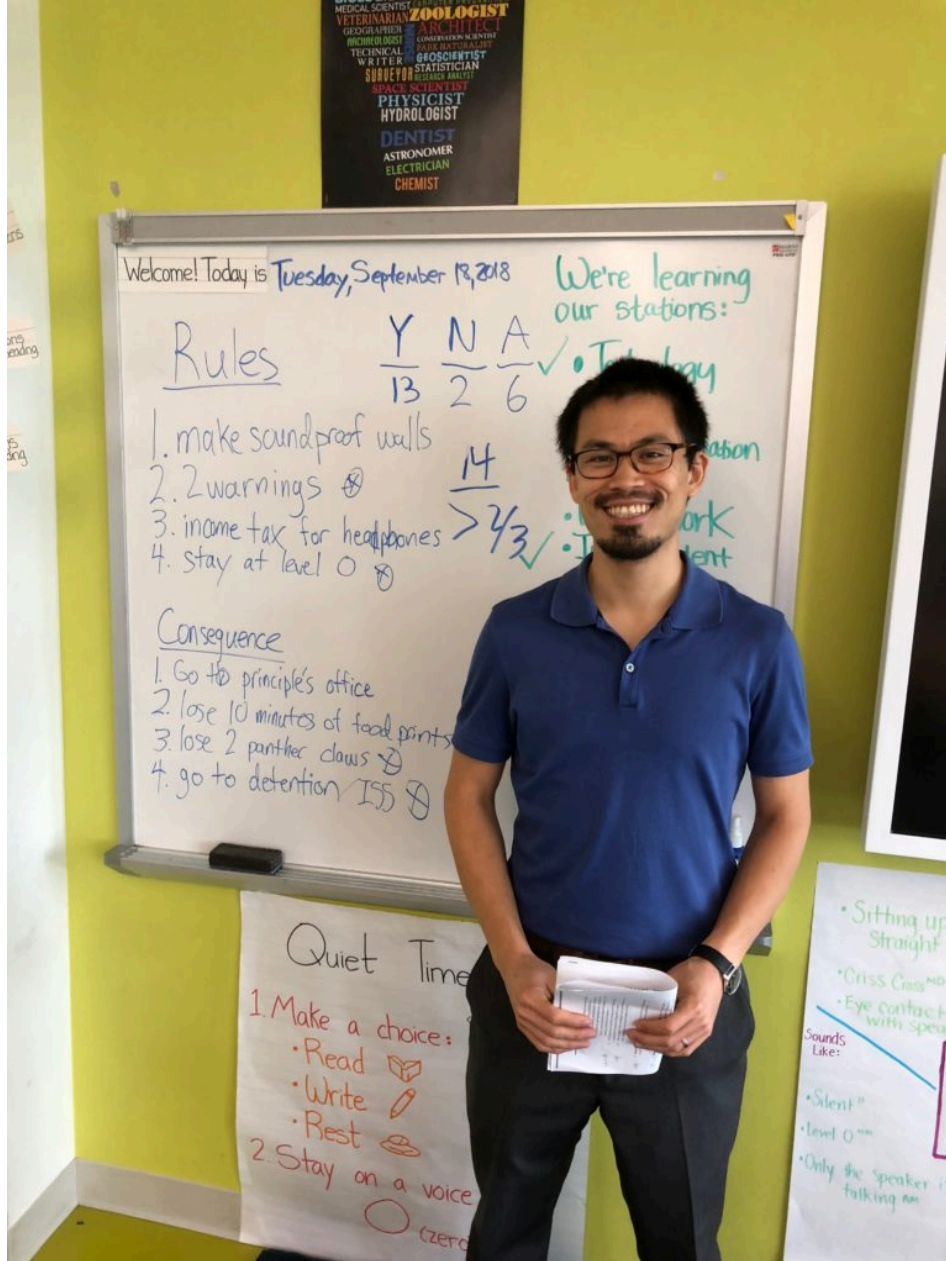 MEDICAL SCIENTIST
VETERINARIAN ZOOLOGIST
GEOGRAPHER ARCHITECT
ARCHAEOLOGIST CONSERVATION SCIENTIST
TECHNICAL WRITER
PARK NATURALIST
GEOSCIENTIST
STATISTICIAN
SURVEYOR RESEARCH ANALYST
SPACE SCIENTIST
PHYSICIST
HYDROLOGIST
DENTIST
ASTRONOMER
ELECTRICIAN
CHEMIST
Welcome! Today is Tuesday, September 18, 2018
Rules
1. make soundproof walls
2. 2 warnings
3. income tax for headphones
4. stay at level 0
Y N A
13 2 6
14
> 2/3
We're learning
our stations:
Consequence
1. Go to principle's office
2. lose 10 minutes of food prints
3. lose 2 panther claws
4. go to detention/ISS
Quiet Time
1. Make a choice:
• Read
• Write
• Rest
2. Stay on a voice
0 (zero
• Sitting up
Straight
• Criss Cross
• Eye contact
with
Sounds
Like:
• Silent
• Level 0
• Only the speaker i
talking